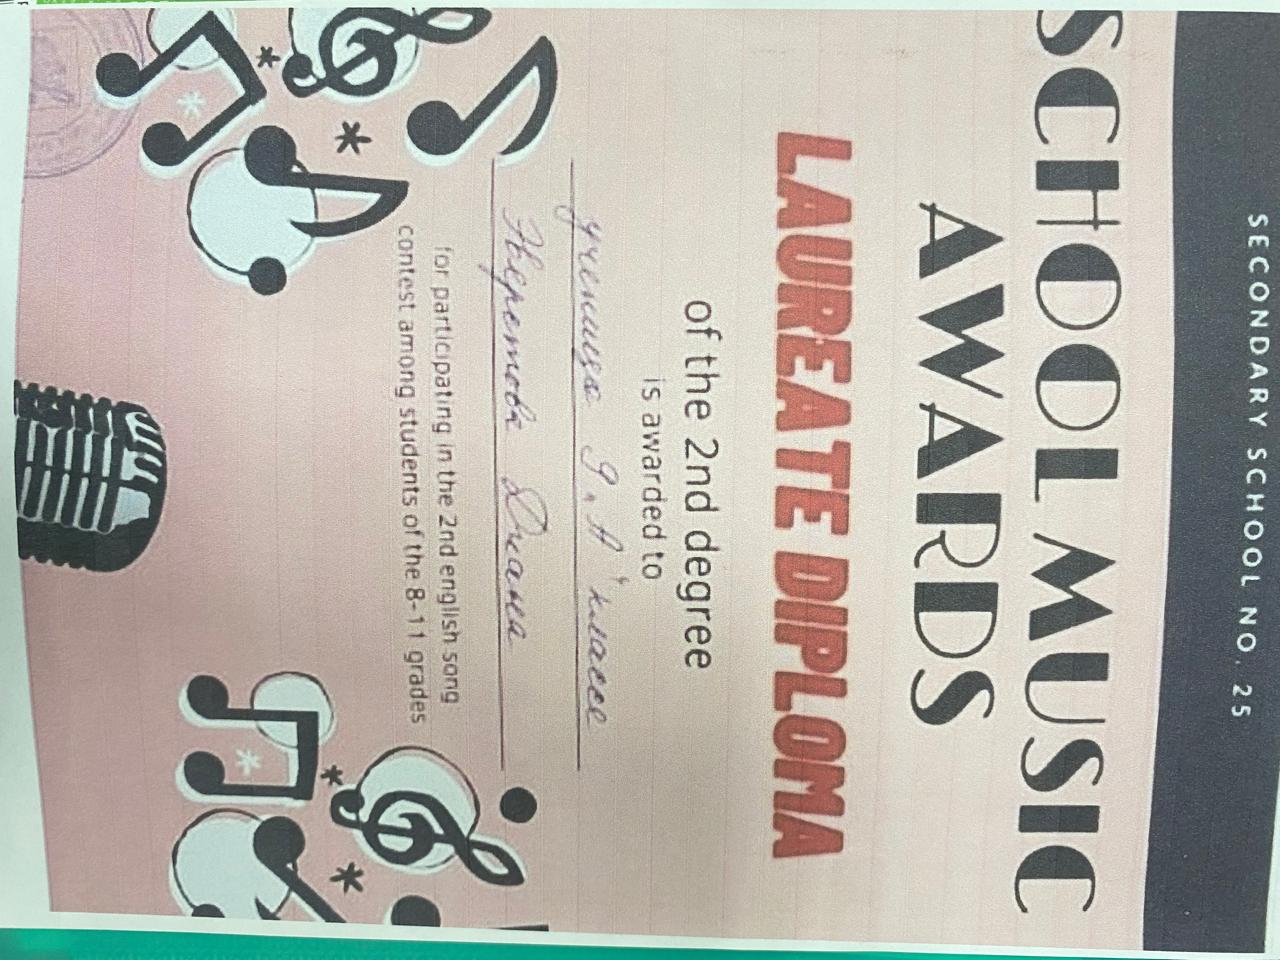 SECONDARY SCHOOL NO. 25
SCHOOL MUSIC
AWARDS
LAUREATE DIPLOMA
of the 2nd degree
is awarded to
ученица 9 "А" классе
Диана
for participating in the 2nd english song
contest among students of the 8-11 grades